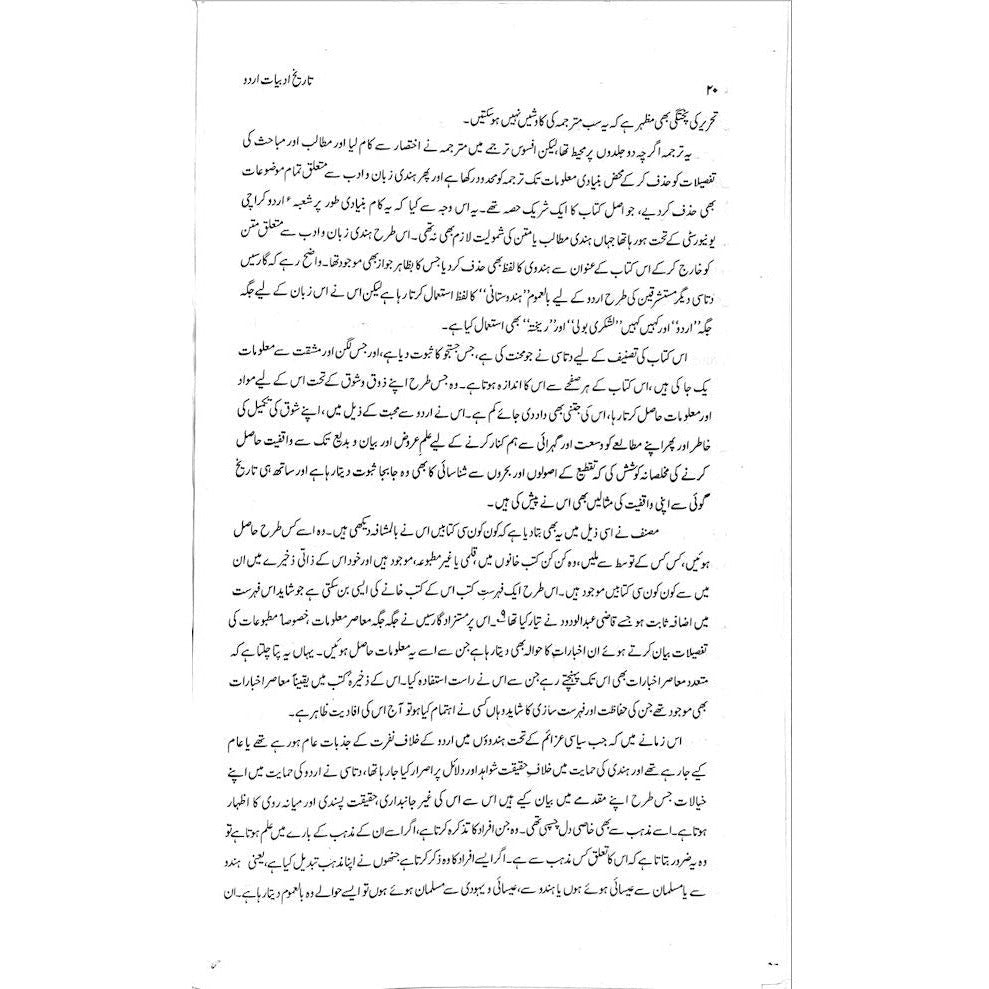 ۲۰
تاریخ ادبیات اردو
تحریر کی پختگی بھی مظہر ہے کہ یہ سب مترجمہ کی کاوشیں نہیں ہو سکتیں۔
یہ ترجمہ اگرچہ دو جلدوں پر محیط تھا، لیکن افسوس ترجمے میں مترجمہ نے اختصار سے کام لیا اور مطالب اور مباحث کی
تفصیلات کو حذف کر کے محض بنیادی معلومات تک ترجمہ کو محدود رکھا ہے اور پھر ہندی زبان و ادب سے متعلق تمام موضوعات
بھی حذف کر دیے، جو اصل کتاب کا ایک شریک حصہ تھے۔ یہ اس وجہ سے کیا کہ یہ کام بنیادی طور پر شعبۂ اردو کراچی
یونیورسٹی کے تحت ہو رہا تھا جہاں ہندی مطالب یا متن کی شمولیت لازم بھی نہ تھی۔ اس طرح ہندی زبان و ادب سے متعلق متن
کو خارج کر کے اس کتاب کے عنوان سے ہندوی کا لفظ بھی حذف کر دیا جس کا بظاہر جواز بھی موجود تھا۔ واضح رہے کہ گارسیں
دتاسی دیگر مستشرقین کی طرح اردو کے لیے بالعموم ”ہندوستانی“ کا لفظ استعمال کرتا رہا ہے لیکن اس نے اس زبان کے لیے جگہ
جگہ ”اردو“ اور کہیں کہیں ”لشکری بولی“ اور ”ریختہ“ بھی استعمال کیا ہے۔
اس کتاب کی تصنیف کے لیے دتاسی نے جو محنت کی ہے، جس جستجو کا ثبوت دیا ہے، اور جس لگن اور مشقت سے معلومات
یک جا کی ہیں، اس کتاب کے ہر صفحے سے اس کا اندازہ ہوتا ہے۔ وہ جس طرح اپنے ذوق و شوق کے تحت اس کے لیے مواد
اور معلومات حاصل کرتا رہا، اس کی جتنی بھی داد دی جائے کم ہے۔ اس نے اردو سے محبت کے ذیل میں، اپنے شوق کی تکمیل کی
خاطر اور پھر اپنے مطالعے کو وسعت اور گہرائی سے ہم کنار کرنے کے لیے علم عروض اور بیان و بدیع تک سے واقفیت حاصل
کرنے کی مخلصانہ کوشش کی کہ تقطیع کے اصولوں اور بحروں سے شناسائی کا بھی وہ جابجا ثبوت دیتا رہا ہے اور ساتھ ہی تاریخ
گوئی سے اپنی واقفیت کی مثالیں بھی اس نے پیش کی ہیں۔
مصنف نے اسی ذیل میں یہ بھی بتا دیا ہے کہ کون کون سی کتابیں اس نے بالمشافہ دیکھی ہیں۔ وہ اسے کس طرح حاصل
ہوئیں، کس کس کے توسط سے ملیں، وہ کن کن کتب خانوں میں، قلمی یا غیر مطبوعہ، موجود ہیں اور خود اس کے ذاتی ذخیرے میں ان
میں سے کون کون سی کتابیں موجود ہیں۔ اس طرح ایک فہرستِ کتب اس کے کتب خانے کی ایسی بن سکتی ہے جو شاید اس فہرست
میں اضافہ ثابت ہو جسے قاضی عبدالودود نے تیار کیا تھا۹۔ اس پر مستزاد گارسیں نے جگہ جگہ معاصر معلومات خصوصاً مطبوعات کی
تفصیلات بیان کرتے ہوئے ان اخبارات کا حوالہ بھی دیتا رہا ہے جن سے اسے یہ معلومات حاصل ہوئیں۔ یہاں یہ پتا چلتا ہے کہ
متعدد معاصر اخبارات بھی اس تک پہنچتے رہے جن سے اس نے راست استفادہ کیا۔ اس کے ذخیرۂ کتب میں یقیناً معاصر اخبارات
بھی موجود تھے جن کی حفاظت اور فہرست سازی کا شاید وہاں کسی نے اہتمام کیا ہو تو آج اس کی افادیت ظاہر ہے۔
اس زمانے میں کہ جب سیاسی عزائم کے تحت ہندوؤں میں اردو کے خلاف نفرت کے جذبات عام ہو رہے تھے یا عام
کیے جا رہے تھے اور ہندی کی حمایت میں خلافِ حقیقت شواہد اور دلائل پر اصرار کیا جا رہا تھا، دتاسی نے اردو کی حمایت میں اپنے
خیالات جس طرح اپنے مقدمے میں بیان کیے ہیں اس سے اس کی غیر جانبداری، حقیقت پسندی اور میانہ روی کا اظہار
ہوتا ہے۔ اسے مذہب سے بھی خاصی دل چسپی تھی۔ وہ جن افراد کا تذکرہ کرتا ہے، اگر اسے ان کے مذہب کے بارے میں علم ہوتا ہے تو
وہ یہ ضرور بتاتا ہے کہ اس کا تعلق کس مذہب سے ہے۔ اگر ایسے افراد کا وہ ذکر کرتا ہے جنھوں نے اپنا مذہب تبدیل کیا ہے، یعنی ہندو
سے یا مسلمان سے عیسائی ہوئے ہوں یا ہندو سے، عیسائی و یہودی سے مسلمان ہوئے ہوں تو ایسے حوالے وہ بالعموم دیتا رہا ہے۔ ان